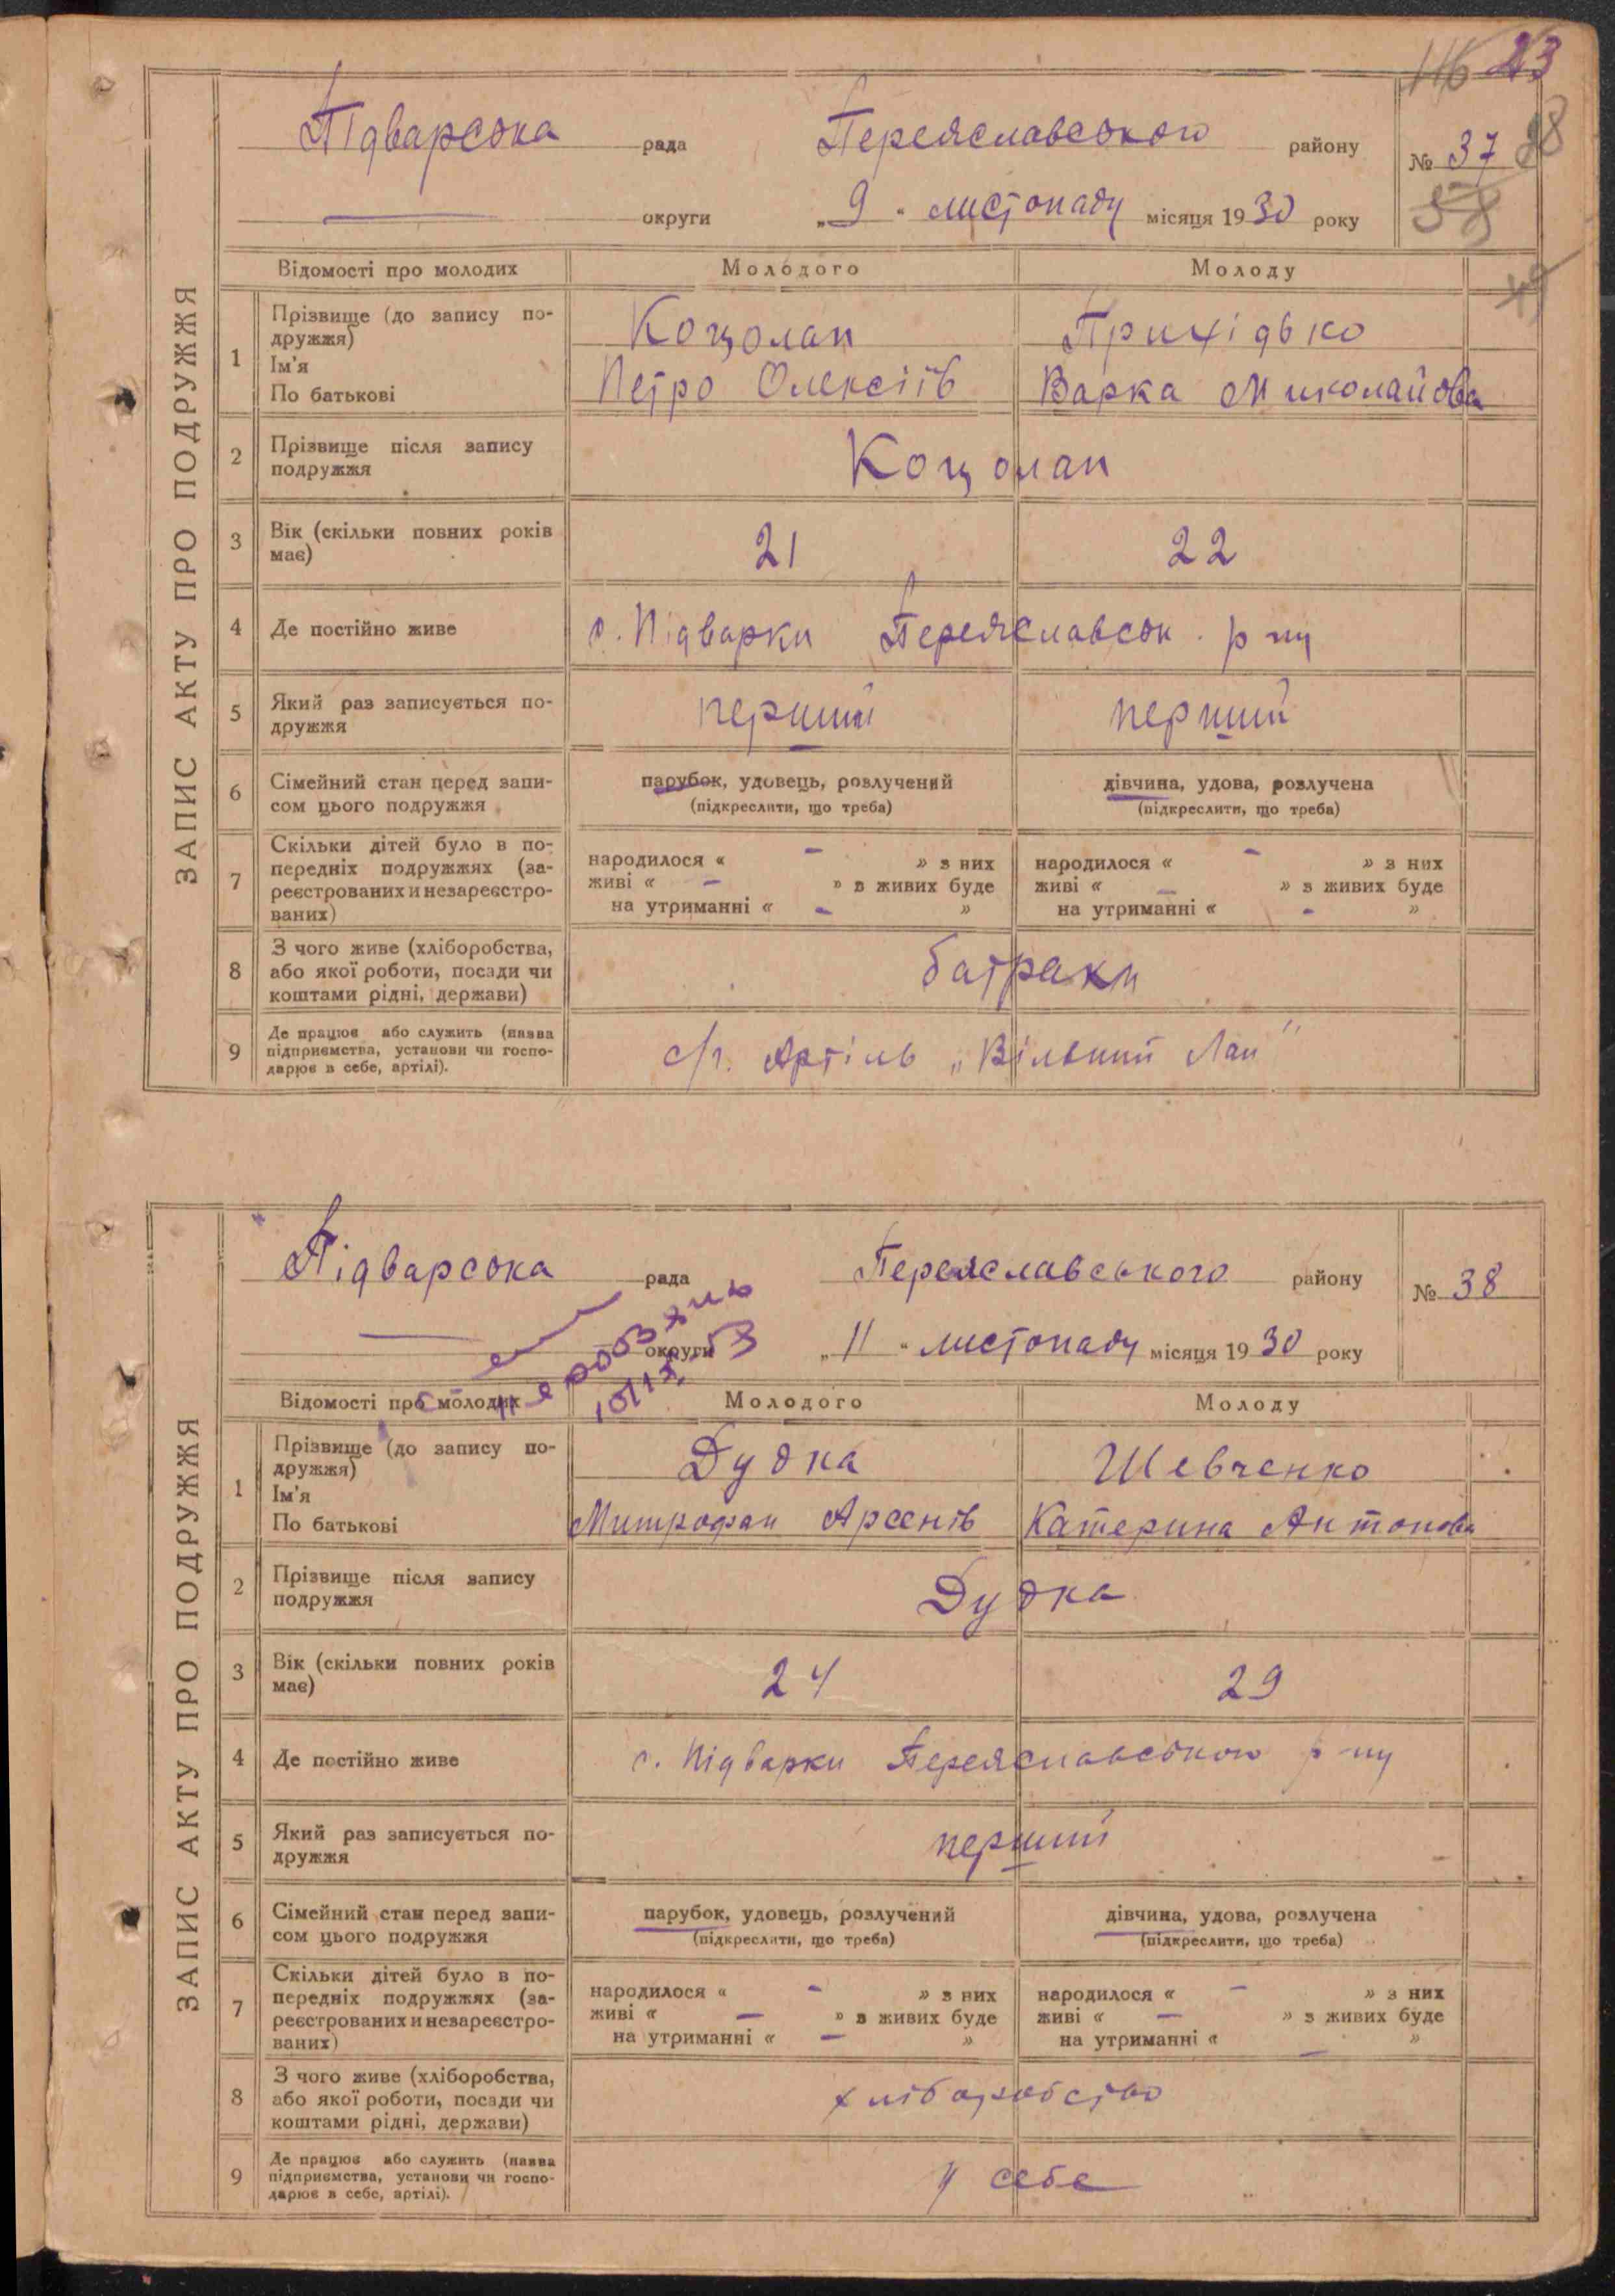 23
116
Підварська рада Переяславського району № 37
88
округи „9“ листопаду місяця 1930 року
58
ЗАПИС АКТУ ПРО ПОДРУЖЖЯ
Відомості про молодих Молодого Молоду
1 Прізвище (до запису по-
дружжя) Коцолап Прихідько
Ім'я
По батькові Петро Олексіїв Варка Миколайова
2 Прізвище після запису
подружжя Коцолап
3 Вік (скільки повних років
має) 21 22
4 Де постійно живе с. Підварки Переяславськ. р-ну
5 Який раз записується по-
дружжя перший перший
6 Сімейний стан перед запи-
сом цього подружжя
парубок, удовець, розлучений дівчина, удова, розлучена
(підкреслити, що треба) (підкреслити, що треба)
7 Скільки дітей було в по-
передніх подружжях (за-
реєстрованих и незареєстро-
ваних)
народилося « – » з них народилося « – » з них
живі « – » в живих буде живі « – » з живих буде
на утриманні « – » на утриманні « – »
8 З чого живе (хліборобства,
або якої роботи, посади чи
коштами рідні, держави) батраки
9 Де працює або служить (назва
підприємства, установи чи госпо-
дарює в себе, артілі). с/г. Артіль „Вільний Лан"
Підварська рада Переяславського району № 38
округи „11“ листопаду місяця 1930 року
ЗАПИС АКТУ ПРО ПОДРУЖЖЯ
Відомості про молодих Молодого Молоду
1 Прізвище (до запису по-
дружжя) Дудка Шевченко
Ім'я
По батькові Митрофан Арсенів Катерина Антонова
2 Прізвище після запису
подружжя Дудка
3 Вік (скільки повних років
має) 24 29
4 Де постійно живе с. Підварки Переяславського р-ну
5 Який раз записується по-
дружжя перший
6 Сімейний стан перед запи-
сом цього подружжя
парубок, удовець, розлучений дівчина, удова, розлучена
(підкреслити, що треба) (підкреслити, що треба)
7 Скільки дітей було в по-
передніх подружжях (за-
реєстрованих и незареєстро-
ваних)
народилося « – » з них народилося « – » з них
живі « – » в живих буде живі « – » з живих буде
на утриманні « – » на утриманні « – »
8 З чого живе (хліборобства,
або якої роботи, посади чи
коштами рідні, держави) хліборобство
9 Де працює або служить (назва
підприємства, установи чи госпо-
дарює в себе, артілі). у себе